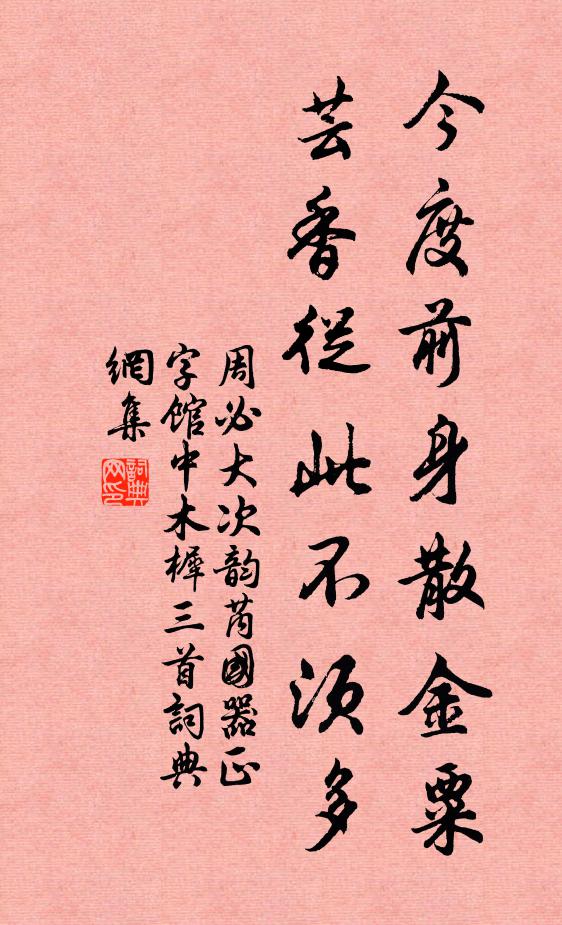 今度前身散金粟
芸香從此不須多
周必大次韵芮國器正
字館中木樨三首詞典
網集
詞典网印